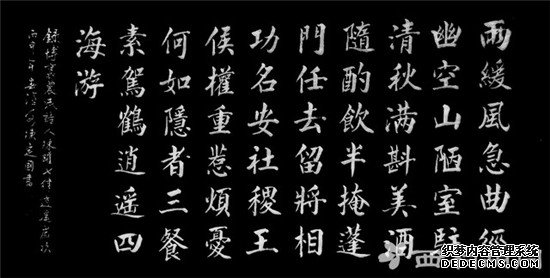 雨緩風急曲徑
幽空山陋室貯
清秋满斟美酒
隨酌飲半掩蓬
門任去留將相
功名安社稷王
侯權重惹煩憂
何如隱者三餐
素駕鶴逍遥四
海游
西
织梦内容管理系统
DEDECMS.COM